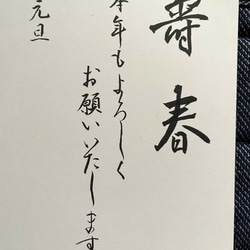 寿春
本年もよろしく
お願いいたします
元旦